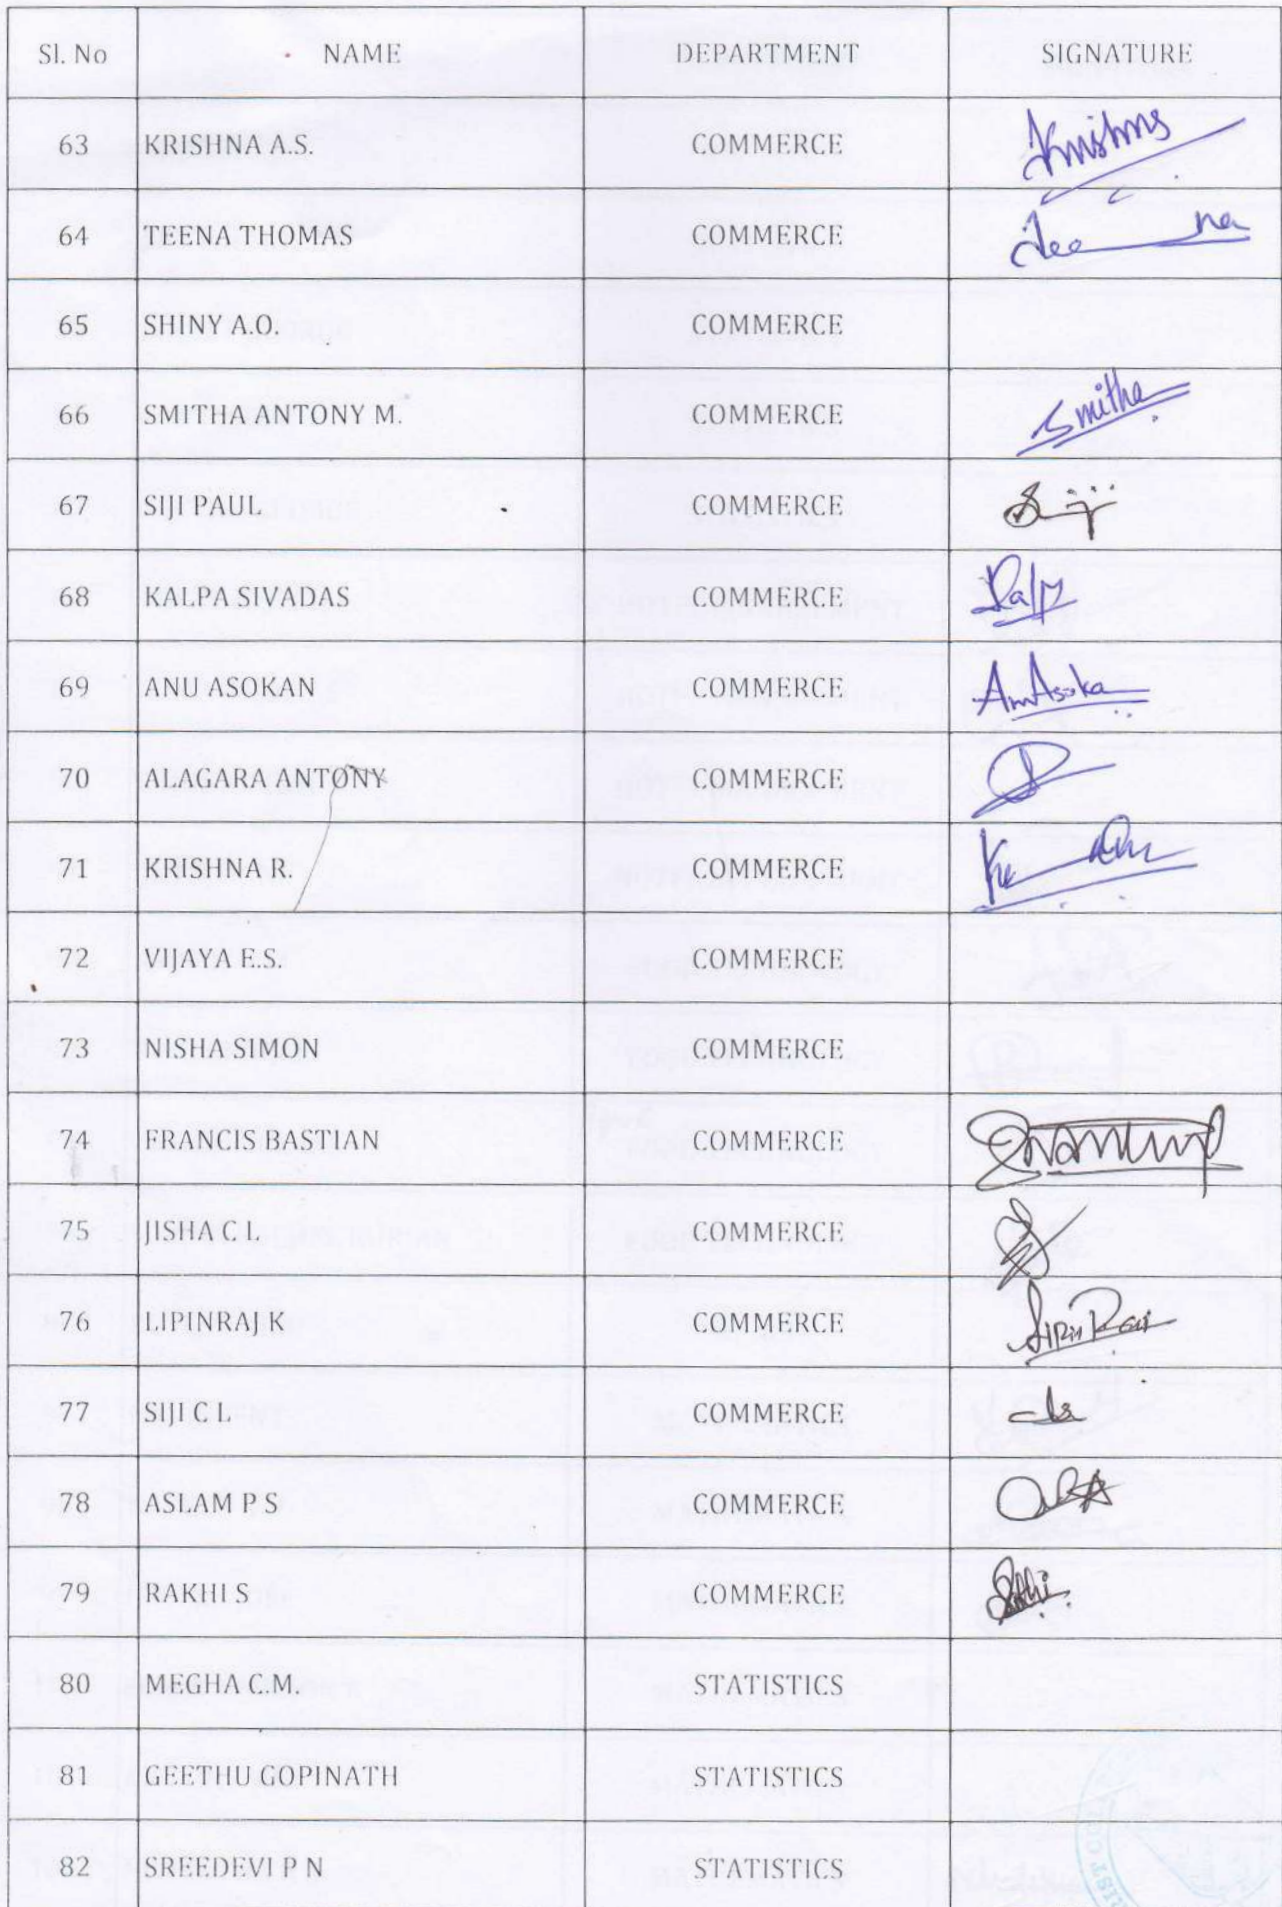 Sl. No NAME DEPARTMENT SIGNATURE
63 KRISHNA A.S. COMMERCE Krishna
64 TEENA THOMAS COMMERCE Tee na
65 SHINY A.O. COMMERCE
66 SMITHA ANTONY M. COMMERCE Smitha
67 SIJI PAUL COMMERCE Siji
68 KALPA SIVADAS COMMERCE
69 ANU ASOKAN COMMERCE AnuAsoka
70 ALAGARA ANTONY COMMERCE
71 KRISHNA R. COMMERCE
72 VIJAYA E.S. COMMERCE
73 NISHA SIMON COMMERCE
74 FRANCIS BASTIAN COMMERCE
75 JISHA C L COMMERCE
76 LIPINRAJ K COMMERCE
77 SIJI C L COMMERCE
78 ASLAM P S COMMERCE
79 RAKHI S COMMERCE
80 MEGHA C.M. STATISTICS
81 GEETHU GOPINATH STATISTICS
82 SREEDEVI P N STATISTICS